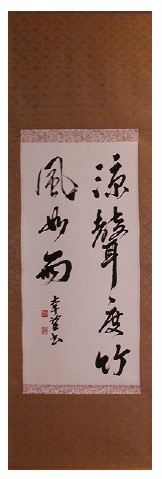 涼聲度竹
風如雨